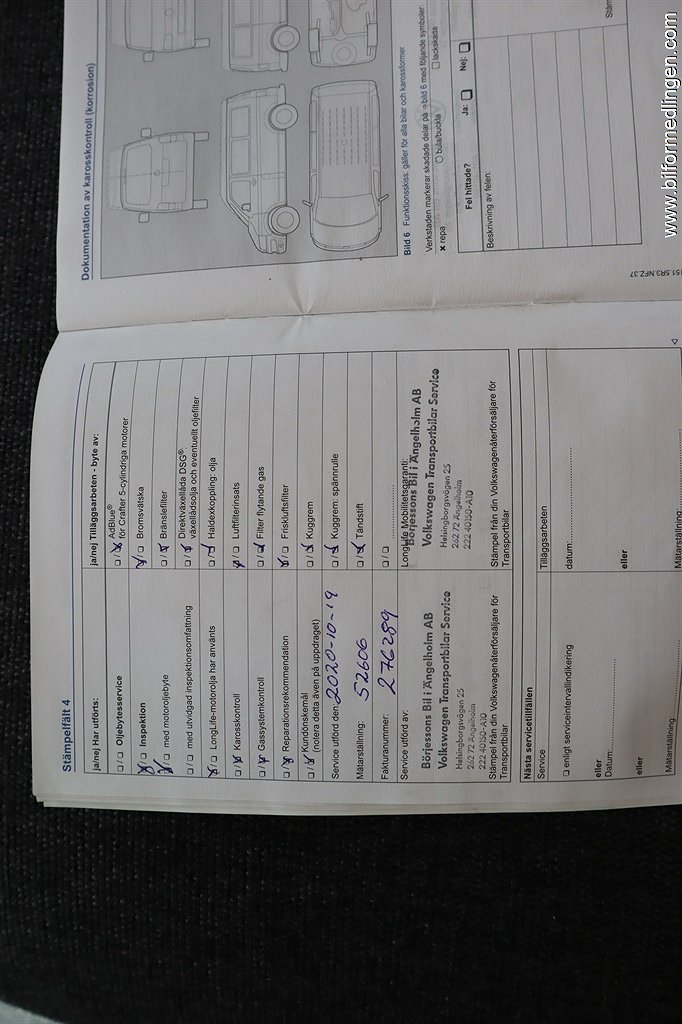 Stämpelfält 4
ja/nej Har utförts:
□/□ Oljebytesservice
□/□ Inspektion
□/□ med motoroljebyte
□/□ med utvidgad inspektionsomfattning
□/□ LongLife-motorolja har använts
□/□ Karosskontroll
□/□ Gassystemkontroll
□/□ Reparationsrekommendation
□/□ Kundönskemål
(notera detta även på uppdraget)
Service utförd den: 2020-10-19
Mätarställning: 52606
Fakturanummer: 276289
Service utförd av:
Börjessons Bil i Ängelholm AB
Volkswagen Transportbilar Service
Helsingborgsvägen 25
262 72 Ängelholm
222 40150-A10
Stämpel från din Volkswagenåterförsäljare för
Transportbilar
ja/nej Tilläggsarbeten - byte av:
□/□ AdBlue®
för Crafter 5-cylindriga motorer
□/□ Bromsvätska
□/□ Bränslefilter
□/□ Direktväxellåda DSG®:
växellådsolja och eventuellt oljefilter
□/□ Haldexkoppling: olja
□/□ Luftfilterinsats
□/□ Filter flytande gas
□/□ Friskluftsfilter
□/□ Kuggrem
□/□ Kuggrem: spännrulle
□/□ Tändstift
□/□
LongLife Mobilitetsgaranti:
Börjessons Bil i Ängelholm AB
Volkswagen Transportbilar Service
Helsingborgsvägen 25
262 72 Ängelholm
222 40150-A10
Stämpel från din Volkswagenåterförsäljare för
Transportbilar
Nästa servicetillfällen
Service
□ enligt serviceintervallindikering
eller
Datum:
eller
Mätarställning:
Tilläggsarbeten
datum:
eller
Mätarställning:
Dokumentation av karosskontroll (korrosion)
Bild 6 Funktionsskiss: gäller för alla bilar och karossformer
Verkstaden markerar skadade delar på ⇒ bild 6 med följande symboler:
× repa
○ bula/buckla
□ lackskada
Fel hittade? Ja: □ Nej: □
Beskrivning av felen:
151.5R3.NFZ.37
www.bilformedlingen.com